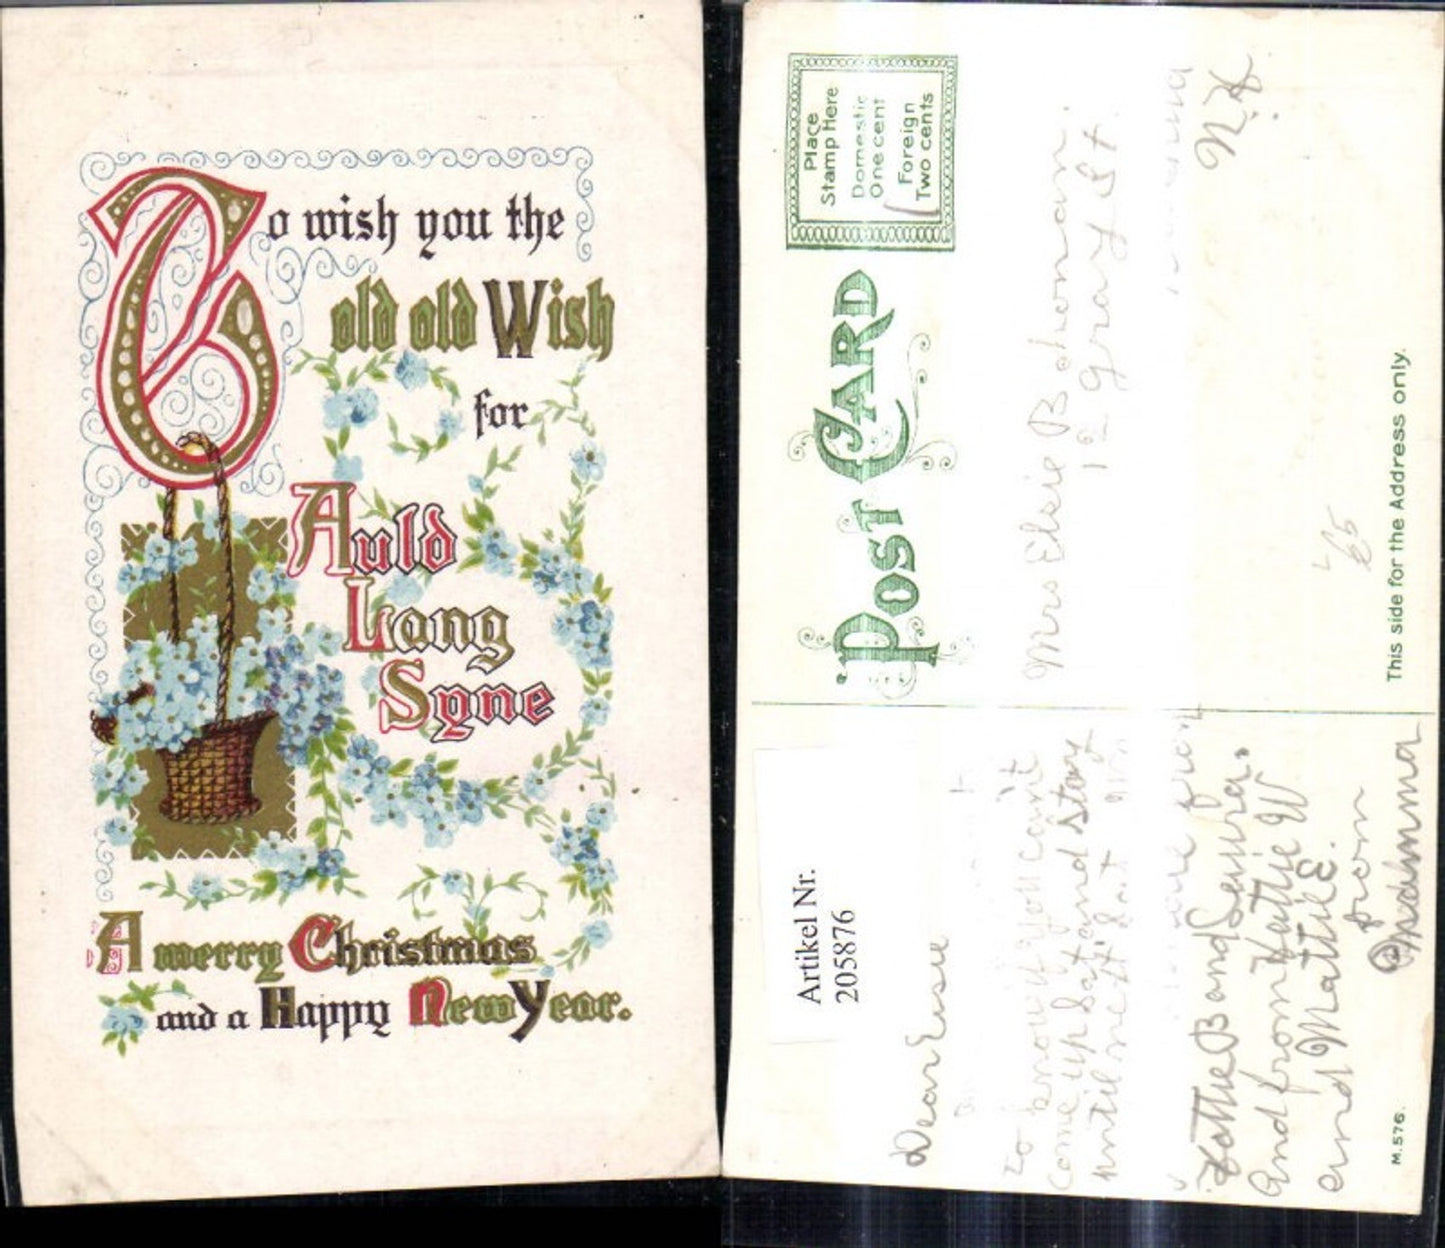 To wish you the
old old Wish
for
Auld
Lang
Syne
A merry Christmas
and a Happy New Year.
Place
Stamp Here
Domestic
One cent
Foreign
Two cents
POST CARD
Mrs Elsie Bohonan.
12 Gray St.
N.Y.
65
This side for the Address only.
Artikel Nr.
205876
Dear
to know if you can't
come up Sat and stay
until next Sat
Lottie B and
and from Hattie W
and Mattie E.
from
Grandma
M.576.